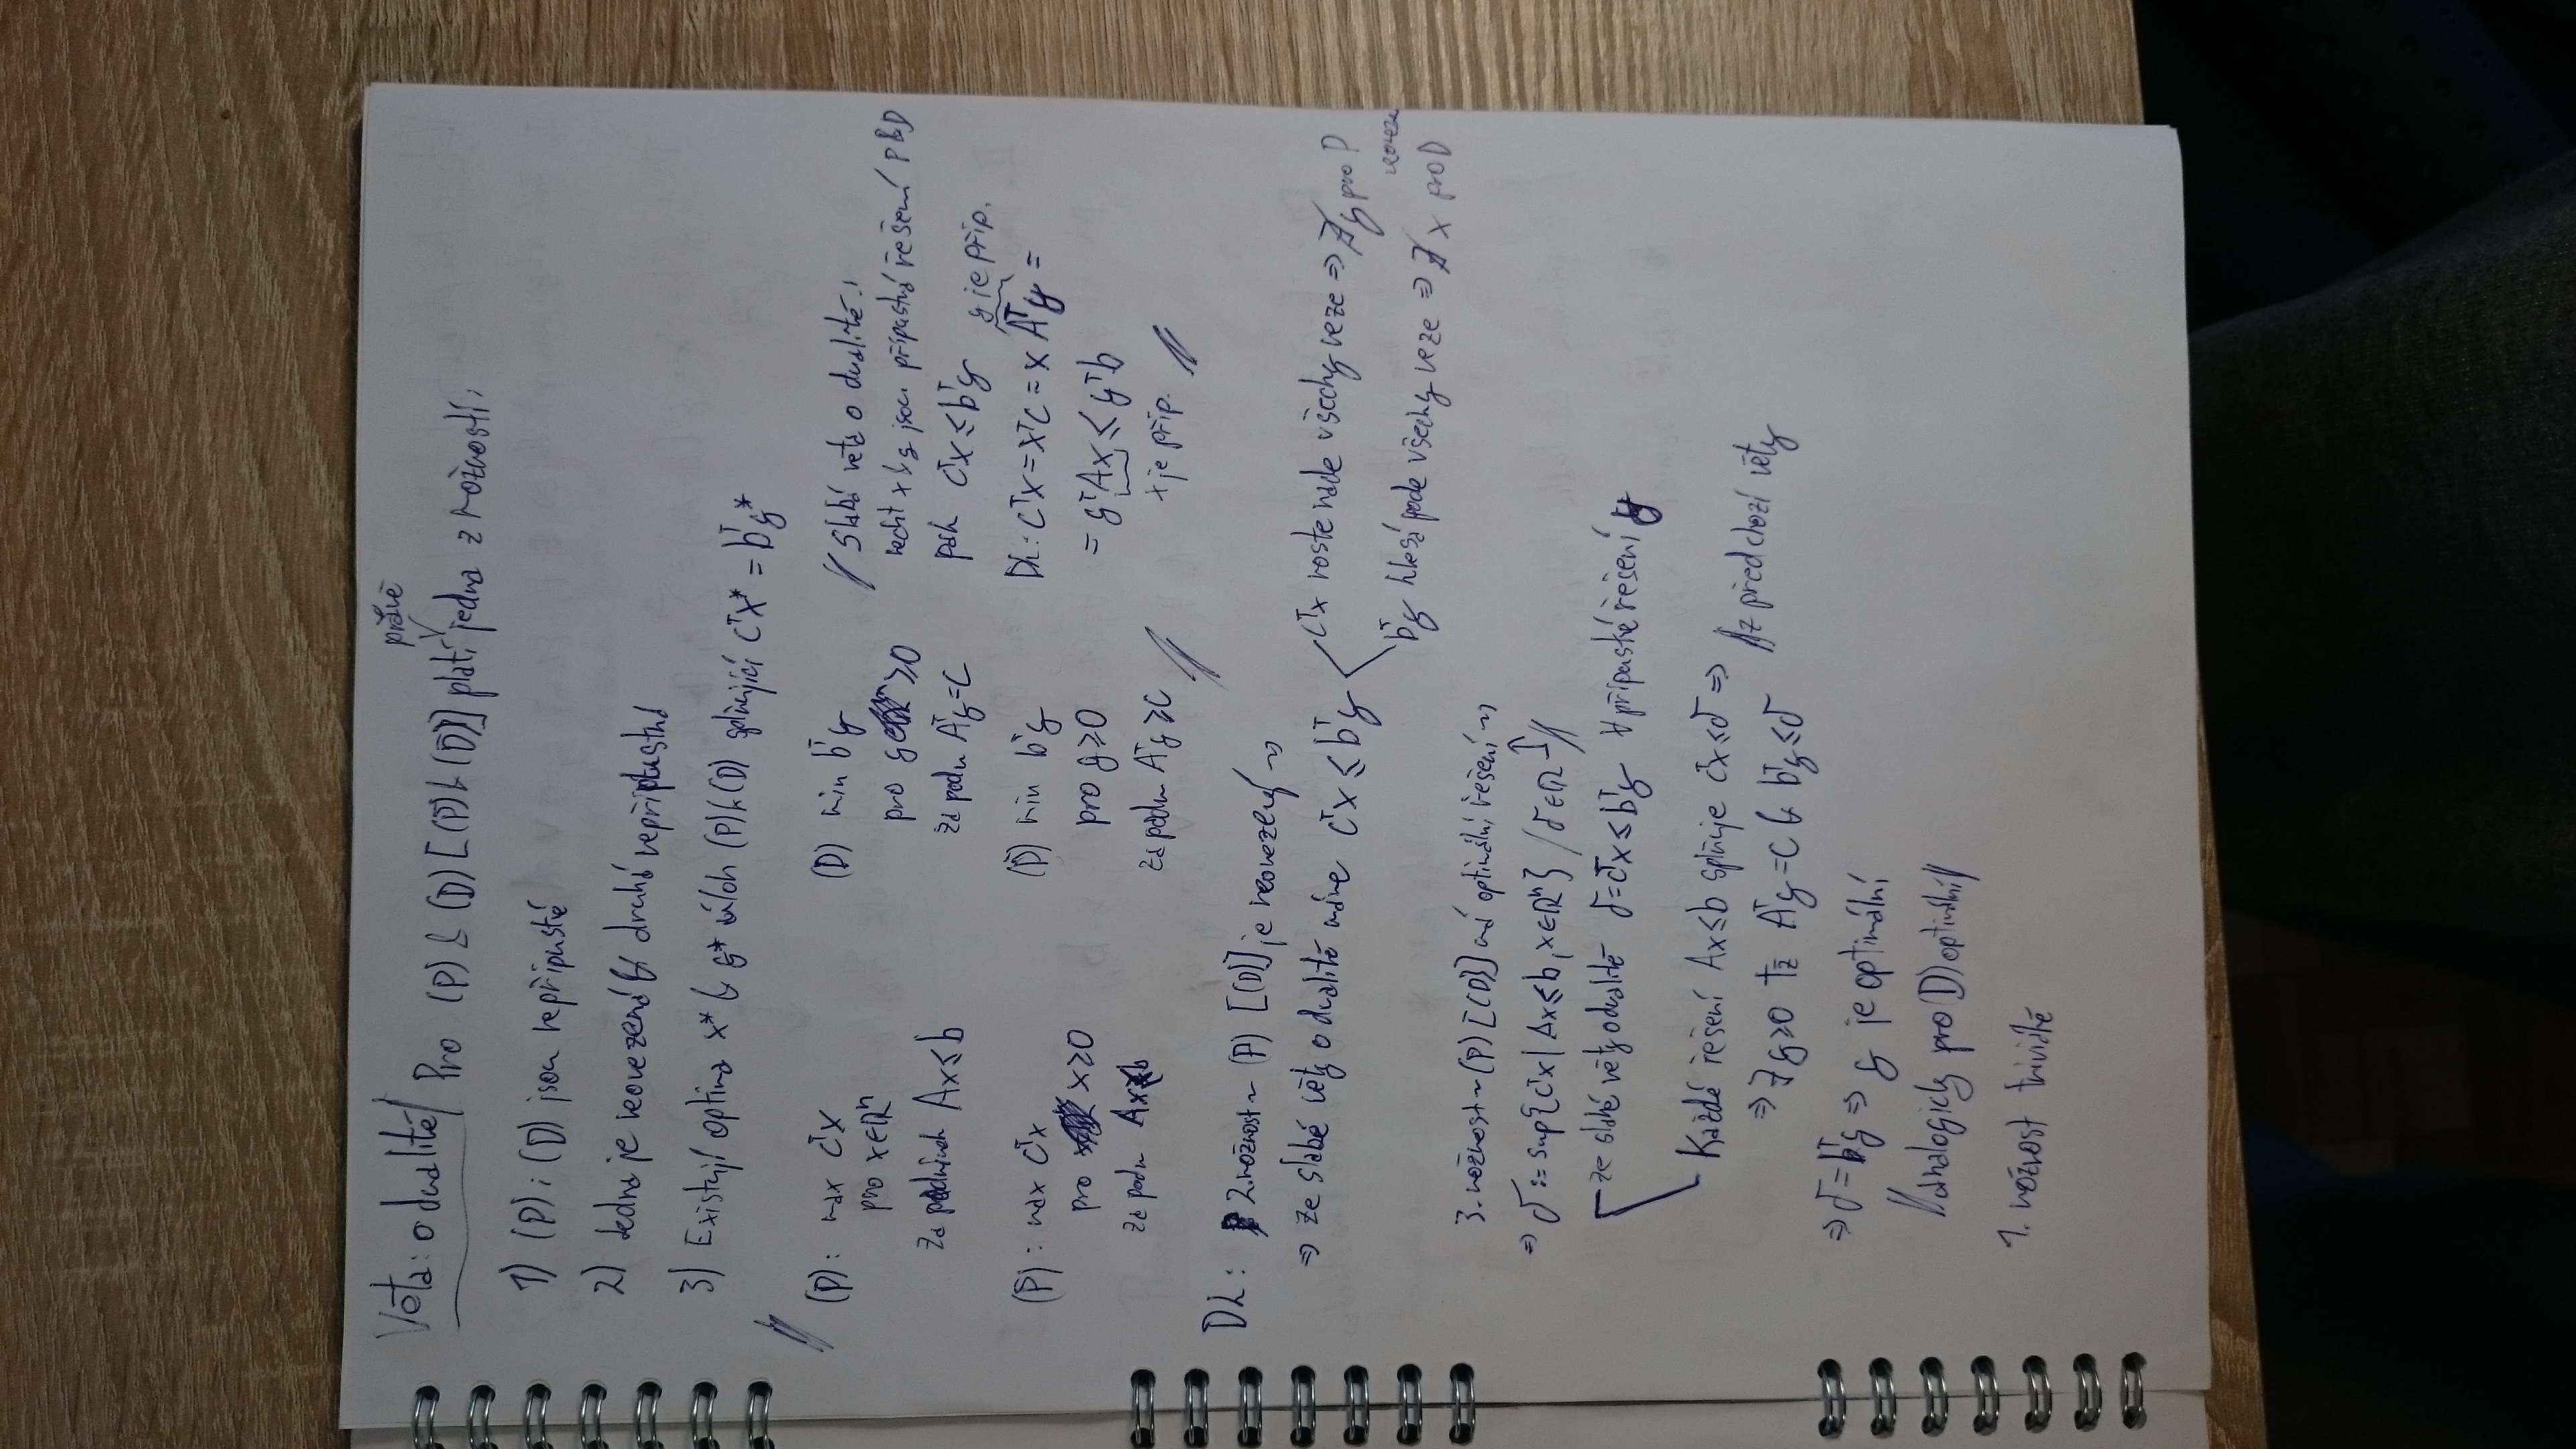 Věta: o dualitě/ Pro (P) & (D) [(P̃) & (D̃)] platí právě jedna z možností:
1) (P) i (D) jsou nepřípustné
2) Jedna je neomezená & druhá nepřípustná
3) Existují optima x* & y* úloh (P) & (D) splňující cᵀx* = bᵀy*
// (P): max cᵀx
pro x∈ℝⁿ
za podmínek Ax≤b
(D) min bᵀy
pro y≥0
za podm Aᵀy=c
(P̃): max cᵀx
pro x≥0
za podm Ax≤b
(D̃) min bᵀy
pro y≥0
za podm Aᵀy≥c //
// Slabá věta o dualitě:
nechť x & y jsou přípustná řešení P & D
pak cᵀx≤bᵀy
y je příp.
Dk: cᵀx=xᵀc=x Aᵀy=
= yᵀAx≤yᵀb
x je příp. //
Dk: 2. možnost ~ (P) [(D)] je neomezená ~>
⇒ ze slabé věty o dualitě máme cᵀx≤bᵀy
cᵀx roste nade všechny meze ⇒ ∄y pro P
bᵀy klesá pode všechny meze ⇒ ∄x pro D
3. možnost ~ (P) [(D)] má optimální řešení ~>
⇒ δ := sup{cᵀx | Ax≤b, x∈ℝⁿ} / δ∈ℝ //
ze slabé věty o dualitě δ=cᵀx≤bᵀy ∀ přípustné řešení y
Každé řešení Ax≤b splňuje cᵀx≤δ ⇒
⇒ ∃y≥0 tž Aᵀy=c & bᵀy≤δ // z předchozí věty
⇒ δ=bᵀy ⇒ y je optimální
//analogicky pro (D) optimální//
1. možnost triviálně